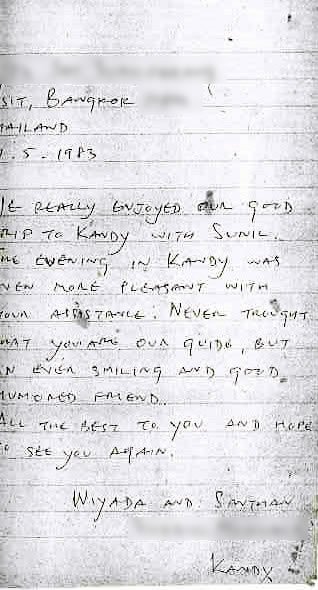 SIT, BANGKOK
HAILAND
.5.1983
E REALLY ENJOYED OUR GOOD
RIP TO KANDY WITH SUNIL.
HE EVENING IN KANDY WAS
VEN MORE PLEASANT WITH
OUR ASSISTANCE. NEVER TROUGHT
HAT YOU ARE OUR GUIDE, BUT
N EVER SMILING AND GOOD
HUMORED FRIEND.
ALL THE BEST TO YOU AND HOPE
TO SEE YOU AGAIN.
WIYADA AND
KANDY